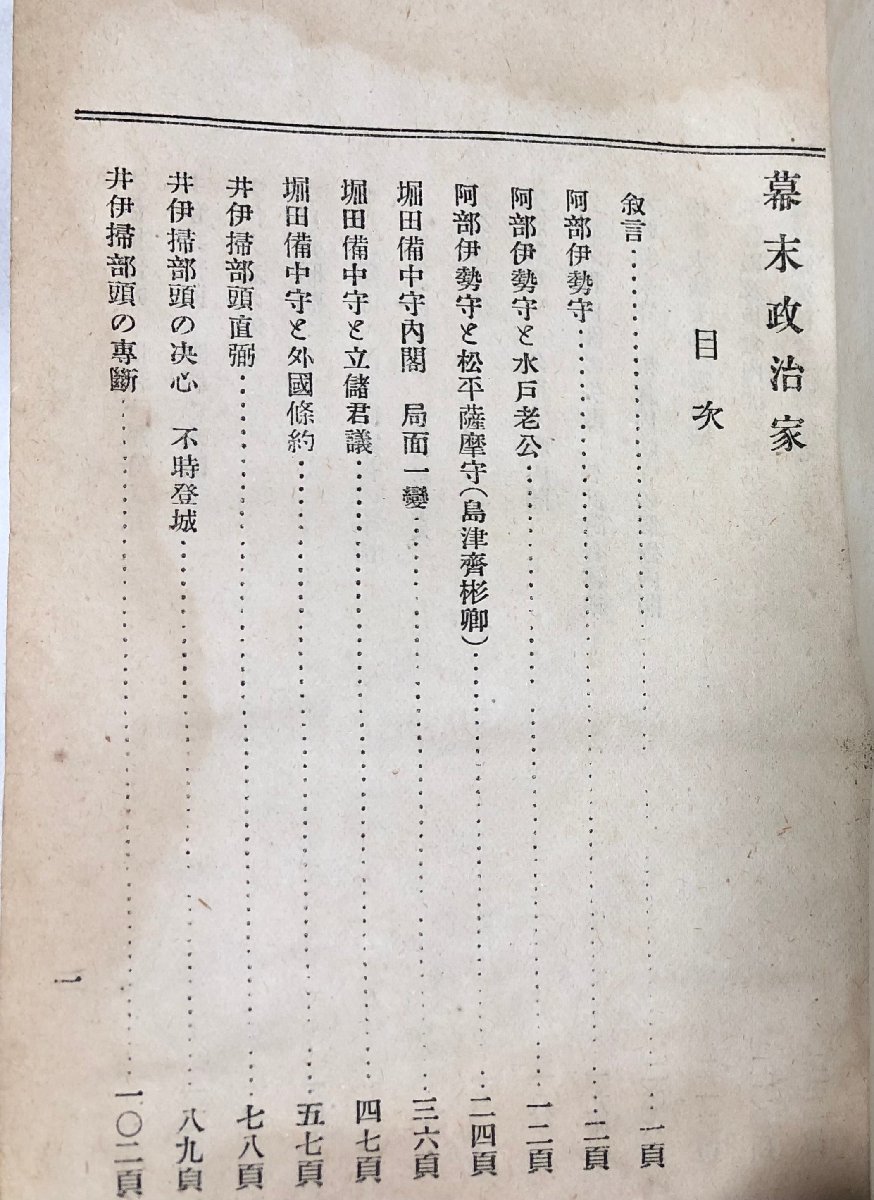 幕末政治家
目次
叙言……一頁
阿部伊勢守……二頁
阿部伊勢守と水戸老公……一二頁
阿部伊勢守と松平薩摩守(島津齊彬卿)……二四頁
堀田備中守內閣 局面一變……三六頁
堀田備中守と立儲君議……四七頁
堀田備中守と外國條約……五七頁
井伊掃部頭直弼……七八頁
井伊掃部頭の決心 不時登城……八九頁
井伊掃部頭の專斷……一〇二頁
一